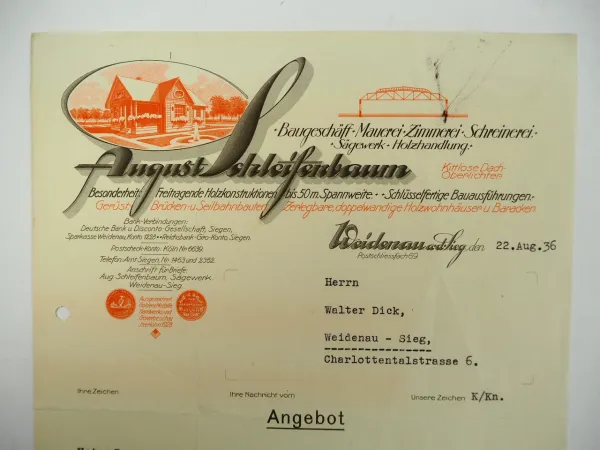 August Schleifenbaum
·Baugeschäft·Mauerei·Zimmerei·Schreinerei·
·Sägewerk·Holzhandlung·
Kittlose Dach-
Oberlichten
Besonderheit: Freitragende Holzkonstruktionen bis 50 m. Spannweite·-·Schlüsselfertige Bauausführungen·
Gerüst- Brücken- u. Seilbahnbauten Zerlegbare, doppelwandige Holzwohnhäuser u. Baracken
Bank-Verbindungen:
Deutsche Bank u. Disconto-Gesellschaft, Siegen,
Sparkasse Weidenau, Konto 1228·Reichsbank-Giro-Konto, Siegen.
Postscheck-Konto: Köln Nr. 6639.
Telefon: Amt Siegen, Nr. 1463 und 2362.
Anschrift für Briefe:
Aug. Schleifenbaum, Sägewerk
Weidenau-Sieg
Weidenau a.d. Sieg, den 22.Aug.36
Postschliessfach 59
Herrn
Walter Dick,
Weidenau - Sieg,
Charlottentalstrasse 6.
Ihre Zeichen
Ihre Nachricht vom
Unsere Zeichen K/Kn.
Angebot